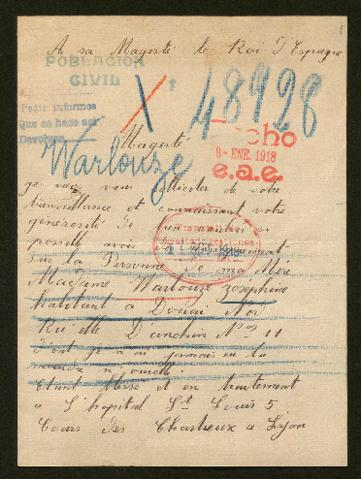 A sa Magesté le Roi D'Espagne
POBLACION
CIVIL
48928
Pedir informes
Que se hace asi
Hecho
8-ENE. 1918
e.a.e.
Magesté
Warlouze
je vous solliciter de votre
bienveillance et connaissant votre
générosité de bien vouloir si
possible avoir
sur la Personne de ma Mère
Madame Warlouze Josephine
habitant a Douai Nord
Ruelle D'anchin Nos 11
dont je n'ai jamais eu la
moindre nouvelle.
Etant blessé et en traitement
a L'hopital St Louis 5
Cours des Chartreux a Lyon